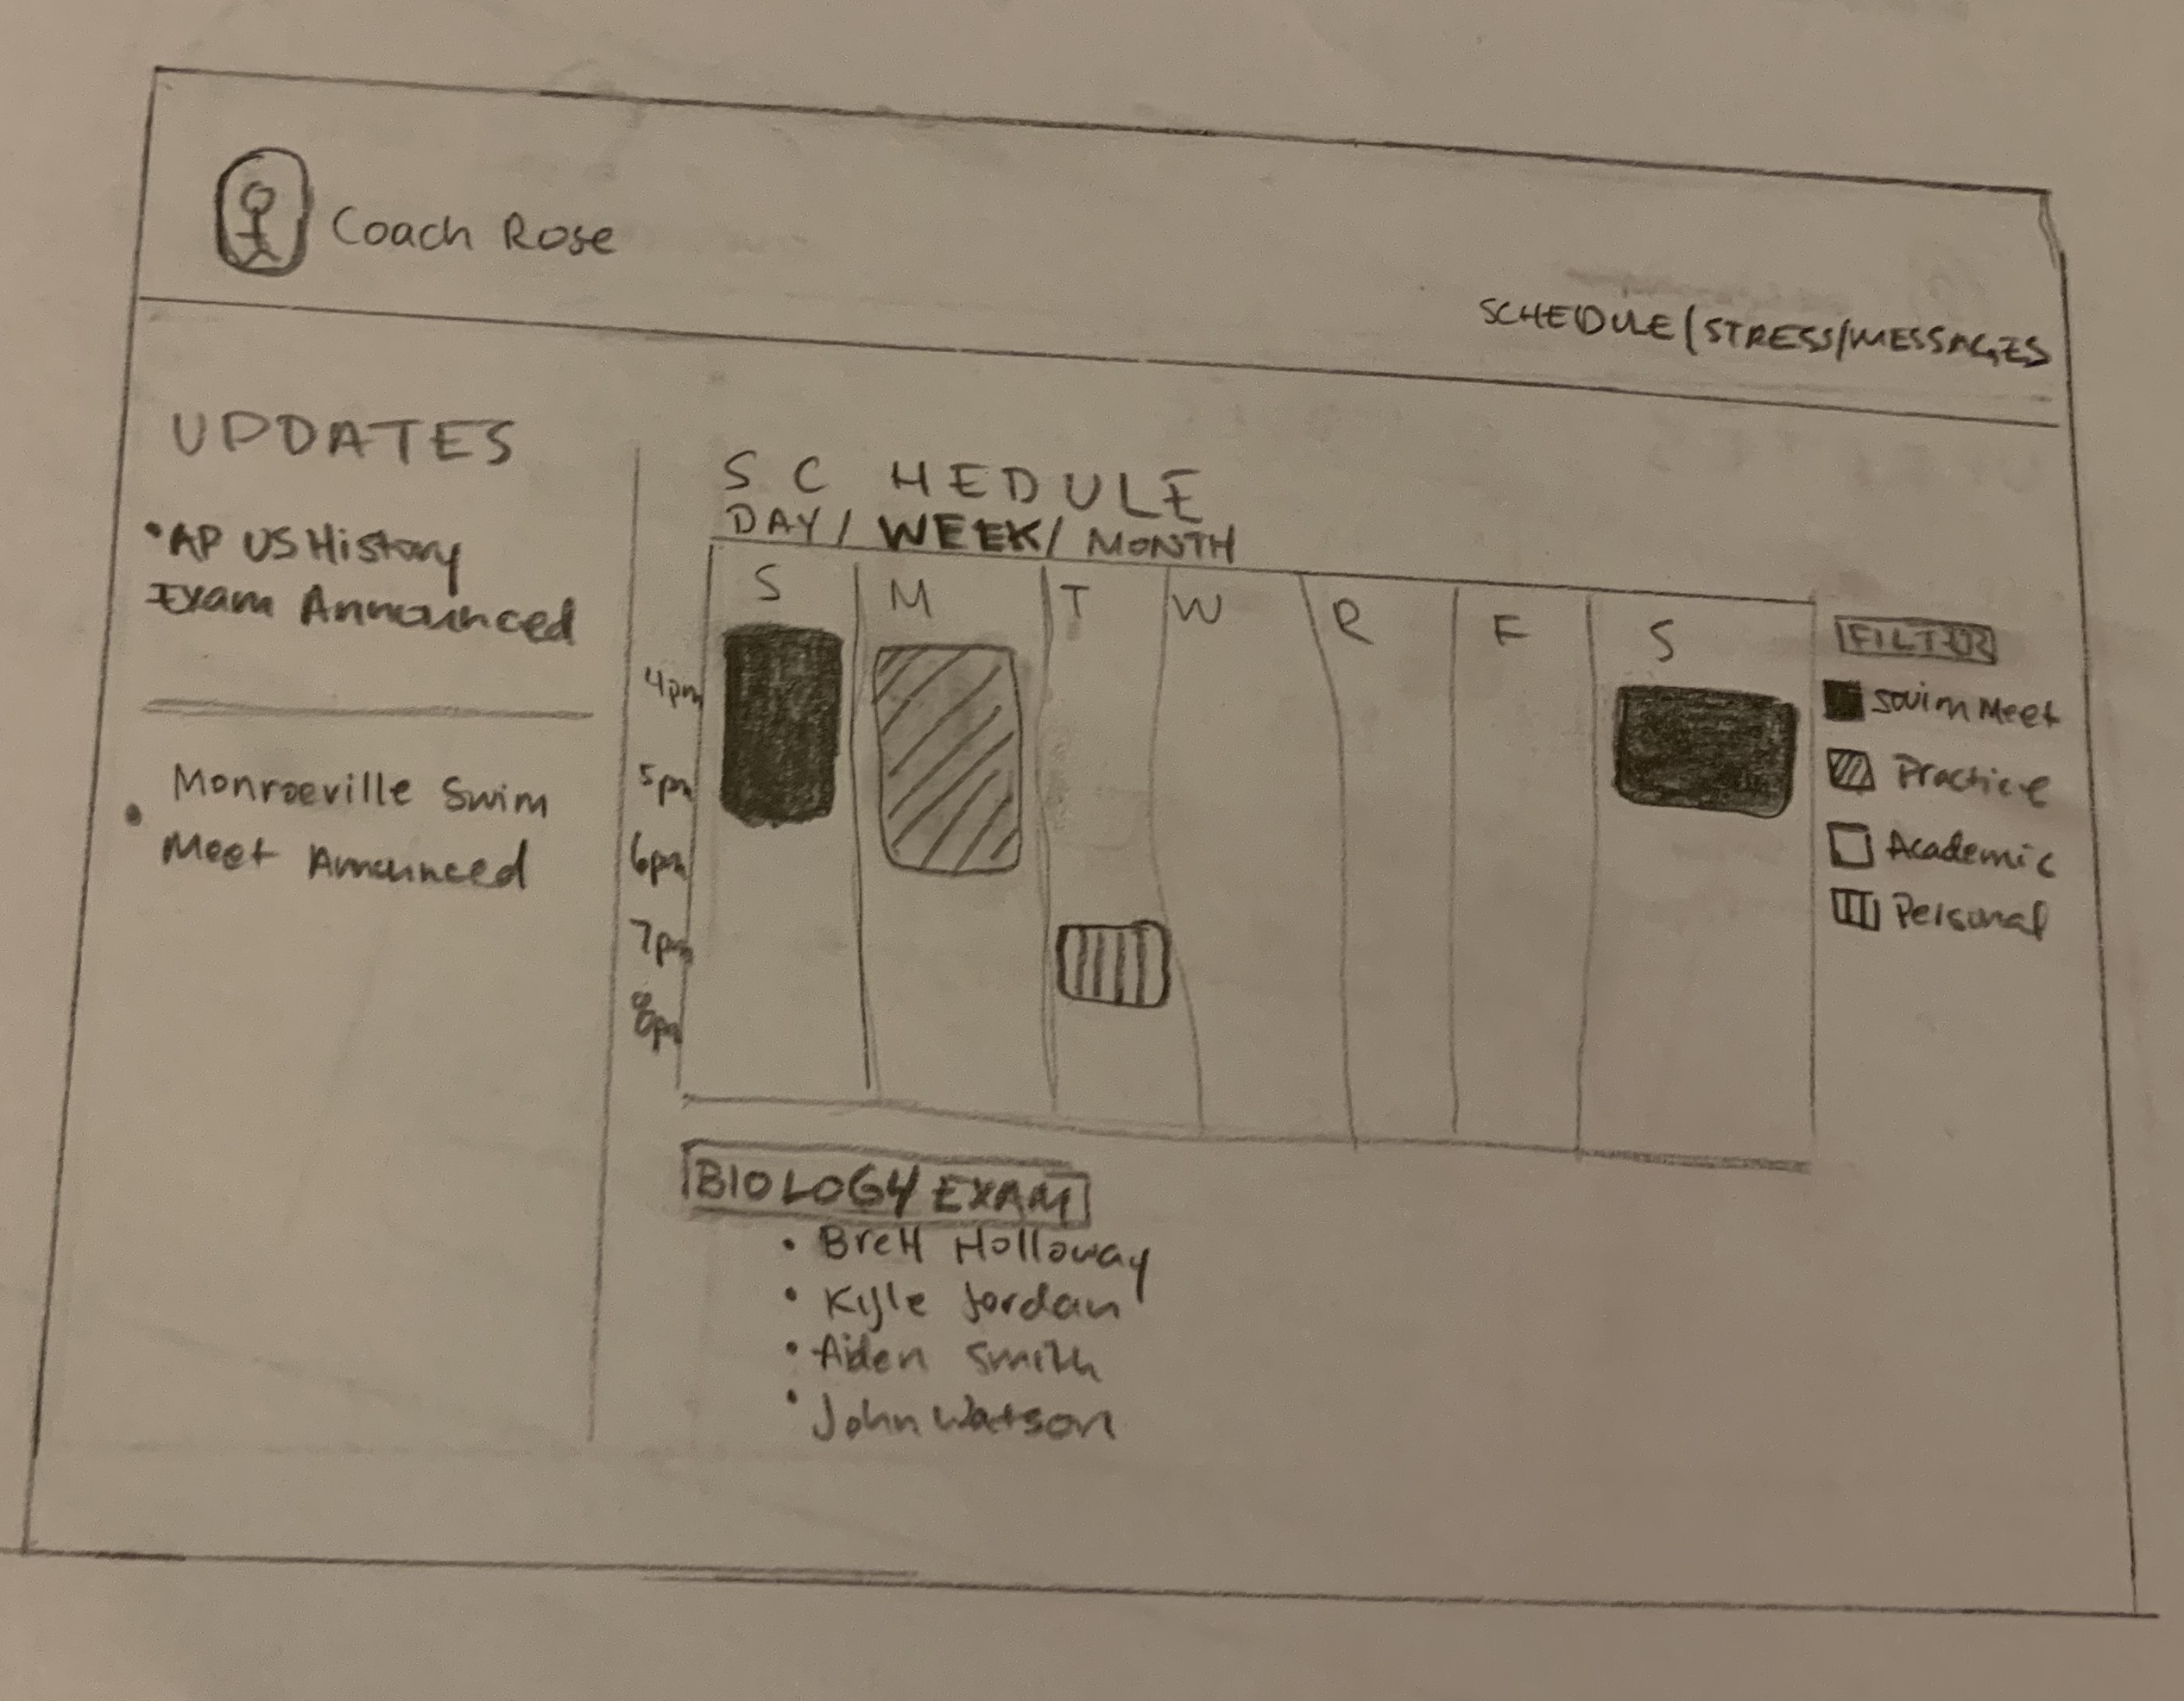 Coach Rose
SCHEDULE/STRESS/MESSAGES
UPDATES
• AP US History
Exam Announced
Monroeville Swim
• Meet Announced
SCHEDULE
DAY/ WEEK/ MONTH
S M T W R F S
4pm
5pm
6pm
7pm
8pm
FILTER
Swim Meet
Practice
Academic
Personal
BIOLOGY EXAM
• Brett Holloway
• Kyle Jordan
• Aiden Smith
• John Watson